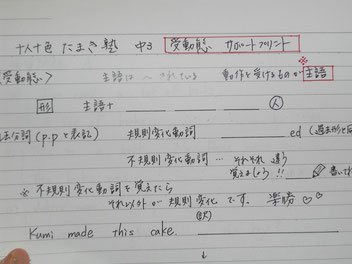 十人十色 たまき塾 中3 受動態 サポートプリント
受動態> 主語は 〜されている 動作を受けるものが主語
※
形 主語+ ____ ____ ____ ____ 人
去分詞(p.pと表記) 規則変化動詞 ____ed (過去形と同
不規則変化動詞 … それぞれ違う
覚えましょう!! 書いて
※ 不規則変化動詞を覚えたら
それ以外が規則変化です。楽勝♡♡
(訳)
Kumi made this cake. ____
↓